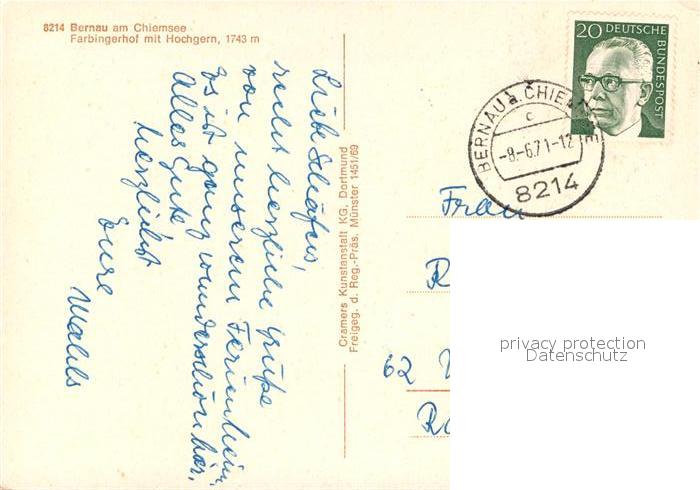 8214 Bernau am Chiemsee
Farbingerhof mit Hochgern, 1743 m
Liebe Schäfers,
recht herzliche Grüße
von unserem Ferienheim,
Es ist ganz wunderschön hier.
Alles Gute
herzlichst
Eure
Cramers Kunstanstalt KG, Dortmund
Freigeg. d. Reg.-Präs. Münster 1451/69
20 DEUTSCHE
BUNDESPOST
BERNAU a. CHIEMSEE
c
-8.-6.71-12
8214
Frau
R
62
privacy protection
Datenschutz